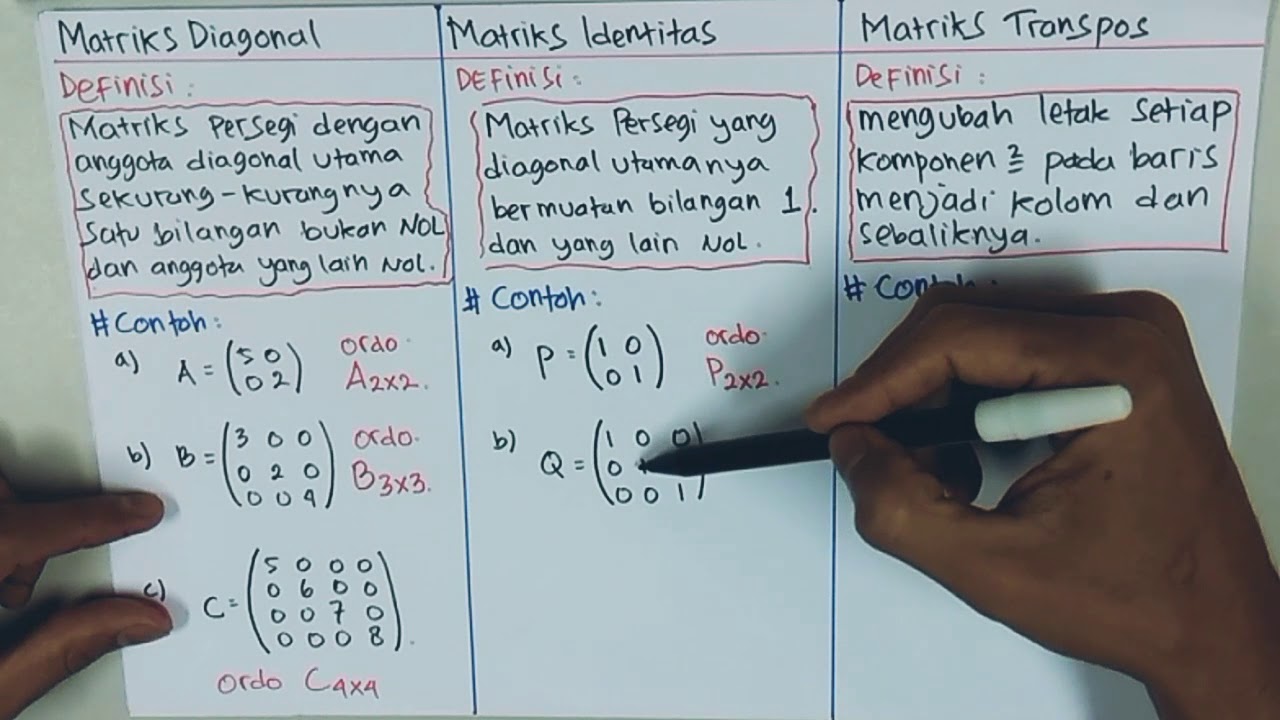 Matriks Diagonal
Definisi :
Matriks Persegi dengan
anggota diagonal utama
sekurang-kurangnya
satu bilangan bukan NOL
dan anggota yang lain NOL.
# Contoh :
a) A = (5 0 ordo
0 2) A2x2.
b) B = (3 0 0 ordo.
0 2 0 B3x3.
0 0 9)
c) C = (5 0 0 0
0 6 0 0
0 0 7 0
0 0 0 8).
ordo C4x4
Matriks Identitas
DEFiNiSi :
Matriks Persegi yang
diagonal utamanya
bermuatan bilangan 1.
dan yang lain NOL.
# Contoh :
a) P = (1 0 ordo.
0 1) P2x2.
b) Q = (1 0 0
0
0 0 1)
Matriks Transpos
Definisi :
mengubah letak setiap
komponen² pada baris
menjadi kolom dan
sebaliknya.
# Contoh :